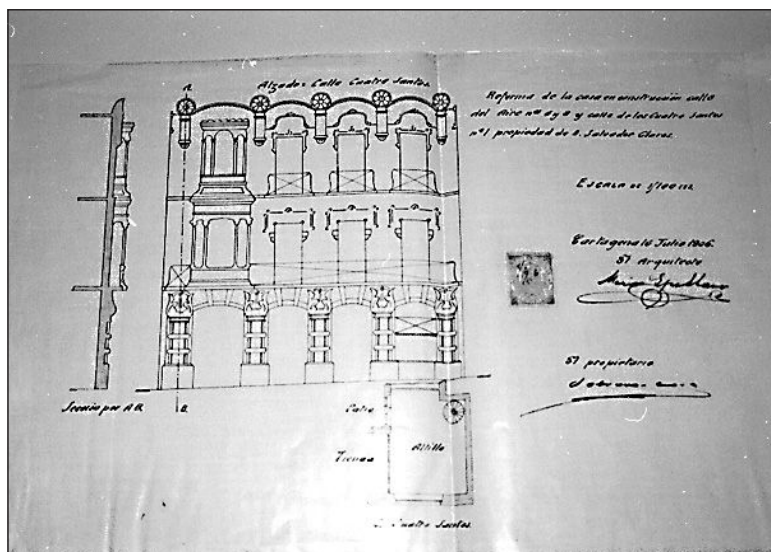 A.
Alzado = Calle Cuatro Santos.
Reforma de la casa en construcción calle
del Aire nos y y calle de los Cuatro Santos
nº 1 propiedad de D. Salvador Clares.
Escala de 1/100 m.
Cartagena 16 Julio 1906.
El Arquitecto
El propietario
Sección por A B.
B.
Patio
Tienda
Altillo
C. Cuatro Santos.